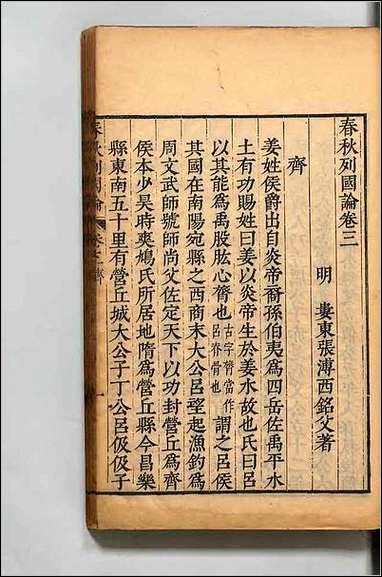 春秋列國論卷三
明 婁東張溥西銘父著
齊
姜姓侯爵出自炎帝裔孫伯夷爲四岳佐禹平水
土有功賜姓曰姜以炎帝生於姜水故也氏曰呂
以其能爲禹股肱心膂也古字膂當作呂脊骨也謂之呂侯
其國在南陽宛縣之西商末大公呂望起漁釣爲
周文武師號師尚父佐定天下以功封營丘爲齊
侯本少昊時爽鳩氏所居地隋爲營丘縣今昌樂
縣東南五十里有營丘城大公子丁公呂伋伋子
春秋列國論 卷三 齊